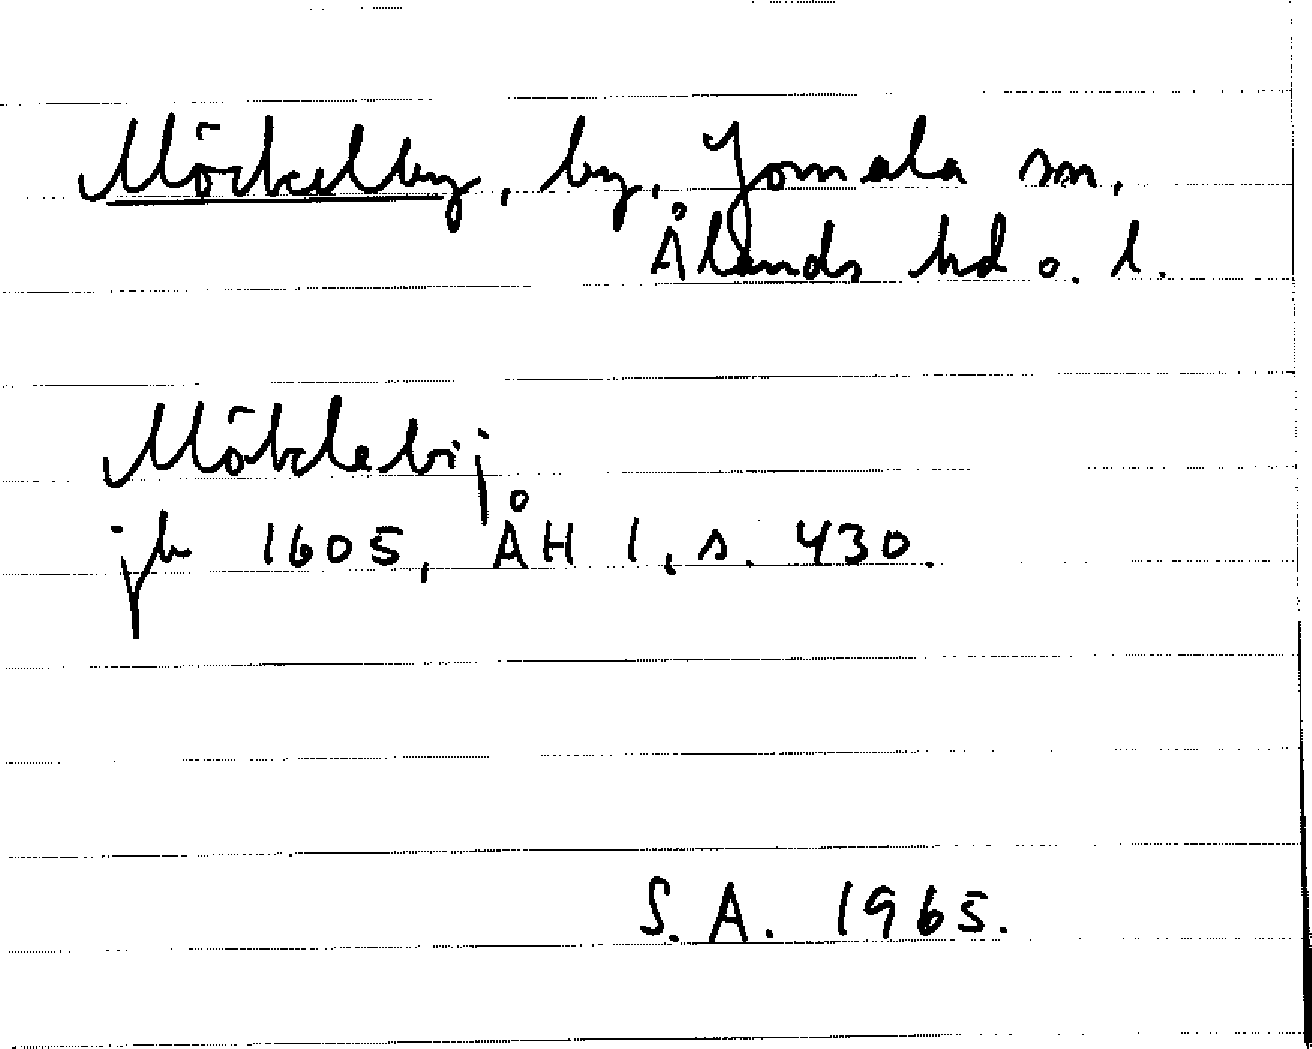 Möckelby, by, Jomala sn,
Ålands hd o. l.
Möcklebij
jb 1605, ÅH 1, s. 430.
S.A. 1965.